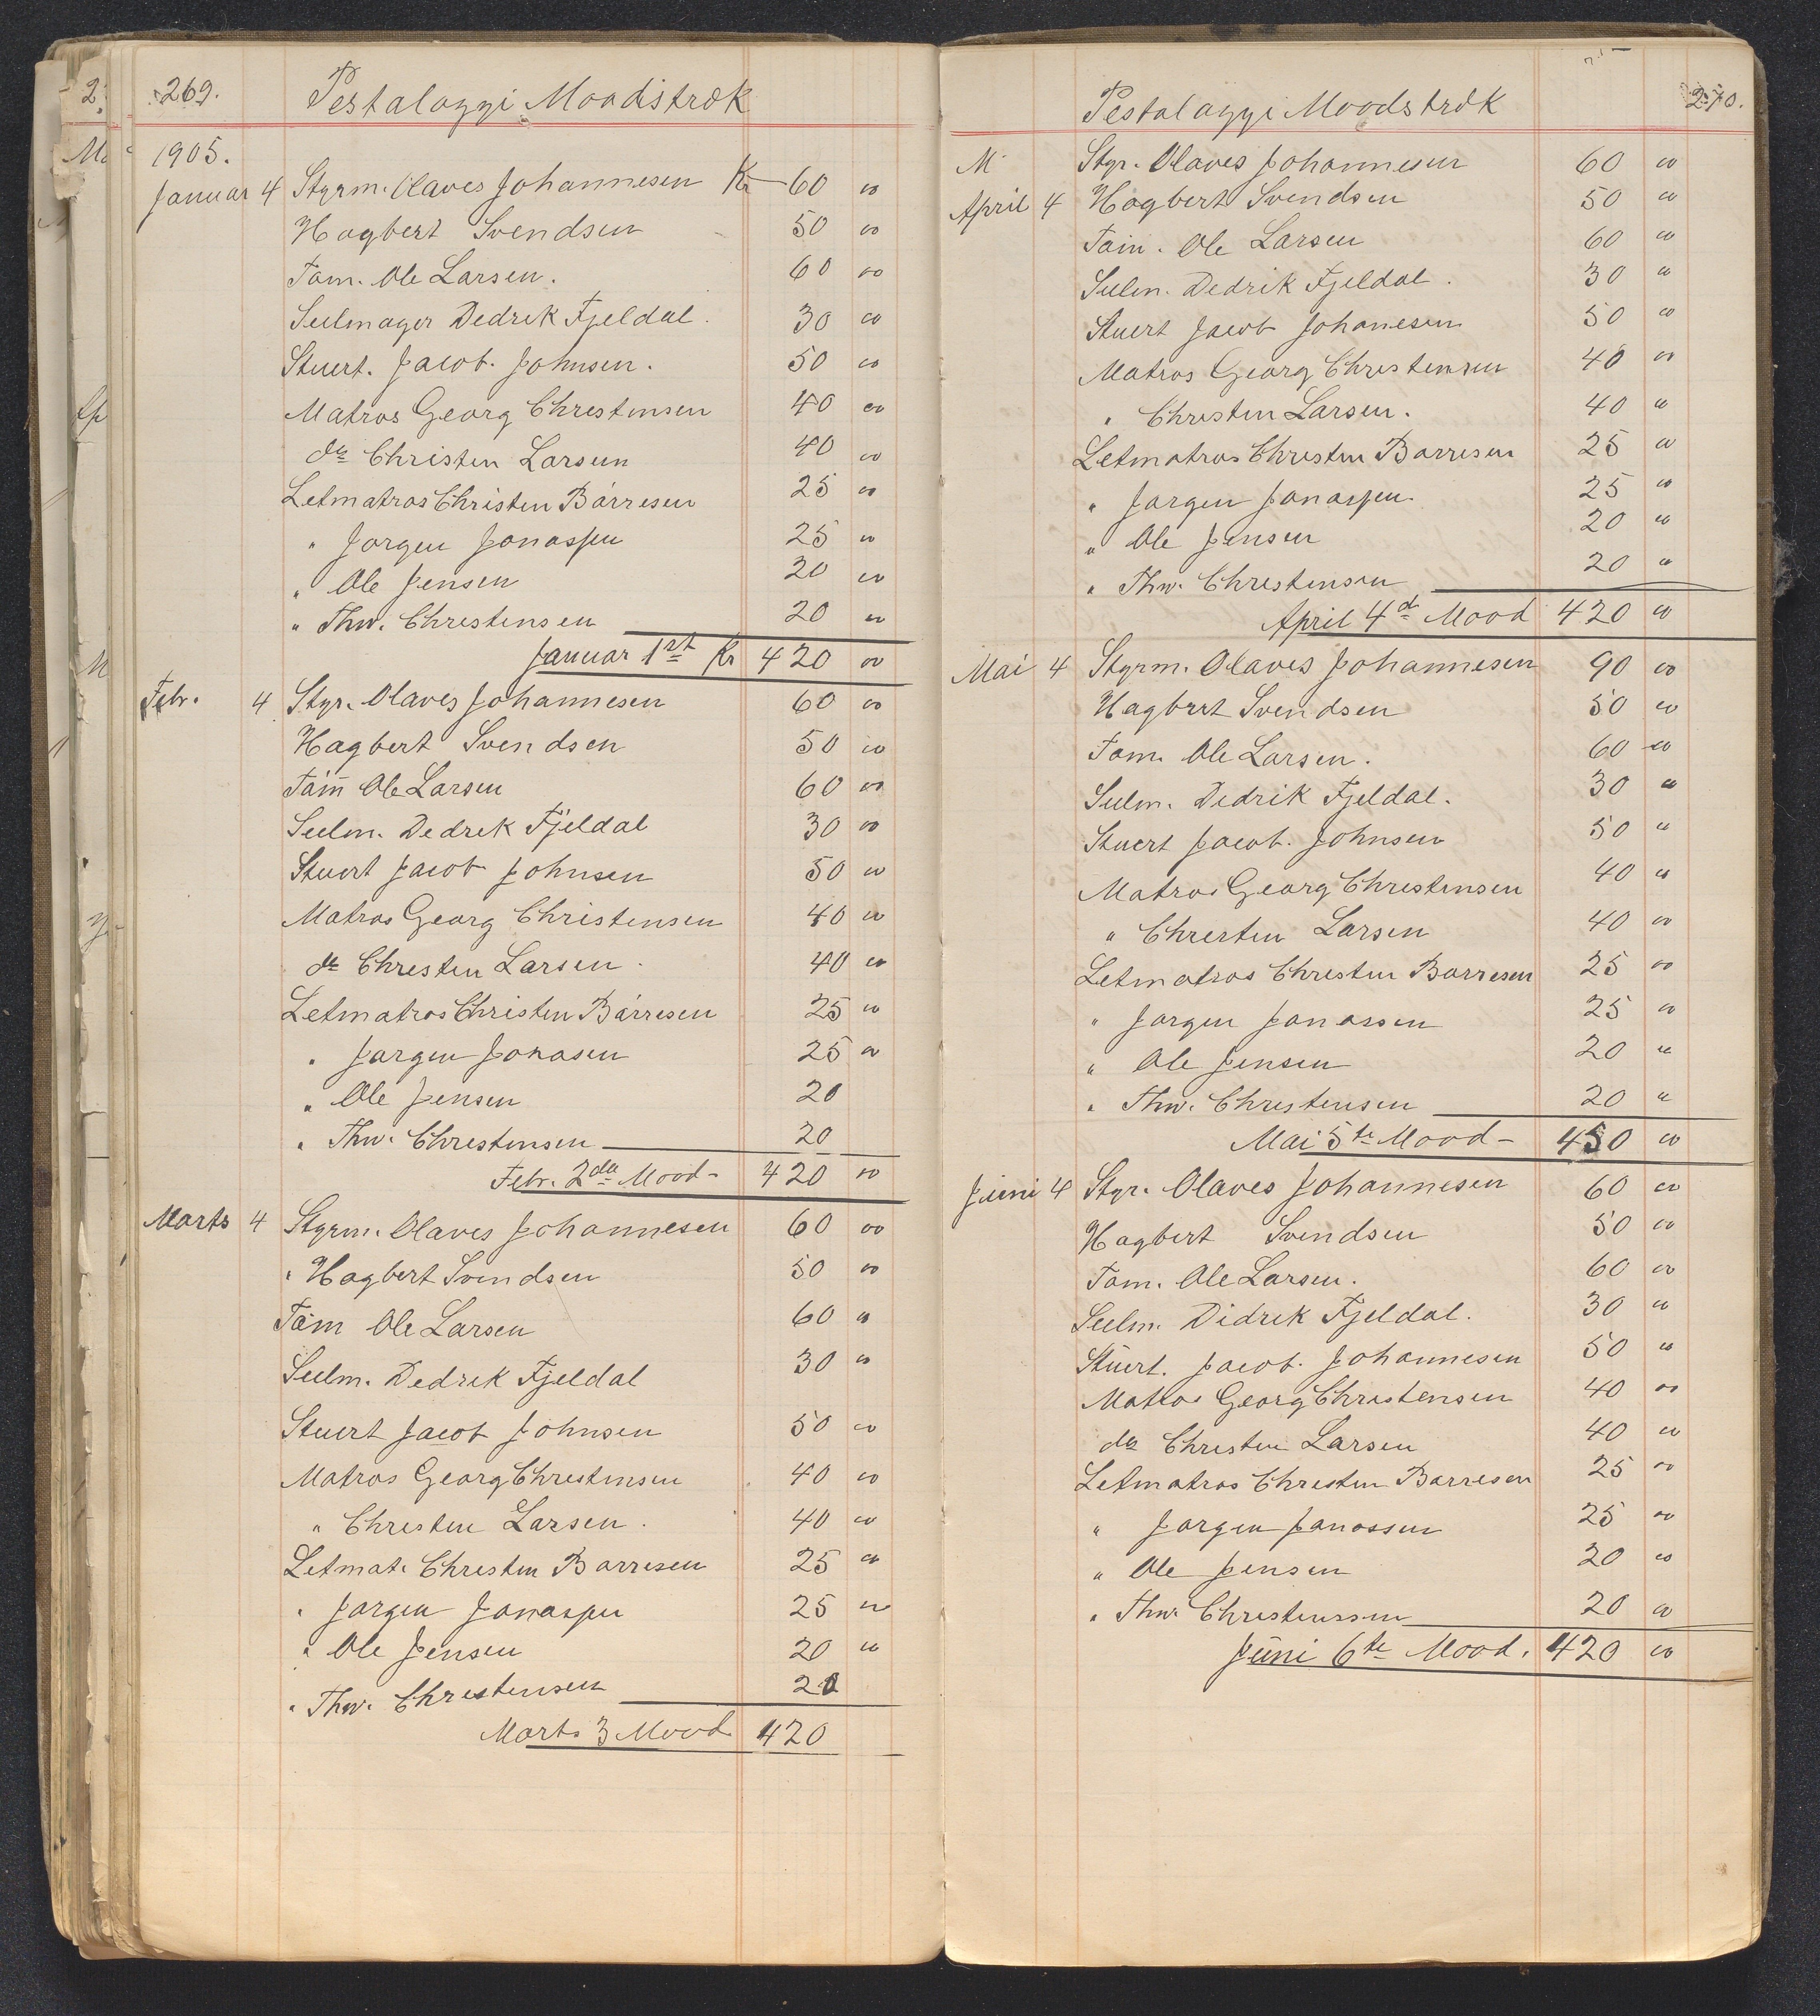 269. Pestalozzi Moadstrœk
1905.
Januar 4 Styrm. Olaves Johannesen Kr 60 00
Hagbert Svendsen 50 00
Tøm. Ole Larsen. 60 00
Seilmager Dedrek Fjeldal. 30 00
Stuert. Jacob. Johnsen. 50 00
Matros Georg Christensen 40 00
do Christen Larsen 40 00
Letmatros Christen Bárresen 25 00
" Jørgen Jonassen 25 00
" Ole Jensen 20 00
" Thw. Chrestensen 20 00
Januar 1st Kr 420 00
Febr. 4 Styr. Olaves Johannesen 60 00
Hagbert Svendsen 50 00
Tøm Ole Larsen 60 00
Seilm. Dedrek Fjeldal 30 00
Stuert Jacob Johnsen 50 00
Matros Georg Christensen 40 00
do Chresten Larsen. 40 00
Letmatros Christen Bárresen 25 00
" Jørgen Jonasen 25 00
" Ole Jensen 20
" Thw. Chrestensen 20
Febr. 2de Mood- 420 00
Marts 4 Styrm. Olaves Johannesen 60 00
" Hagbert Svendsen 50 00
Tøm Ole Larsen 60 00
Seilm. Dedrek Fjeldal 30 00
Stuert Jacob Johnsen 50 00
Matros Georg Chrestensen 40 00
" Chresten Larsen. 40 00
Letmat. Chresten Barresen 25 00
" Jørgen Jonassen 25 00
" Ole Jensen 20 00
" Thw. Chrestensen 20
Marts 3 Mood 420
Pestalozzi Moodstrœk 270.
M Styr. Olaves Johannesen 60 00
April 4 Hagbert Svendsen 50 00
Tøm. Ole Larsen 60 00
Seilm. Dedrik Fjeldal. 30 00
Stuert Jacob Johanesen 50 00
Matros Georg Christensen 40 00
" Christen Larsen. 40 00
Letmatros Christen Barresen 25 00
" Jørgen Jonassen. 25 00
" Ole Jensen 20 00
" Thw. Chrestensen 20 00
April 4de Mood 420 00
Mai 4 Styrm. Olaves Johannesen 90 00
Hagbert Svendsen 50 00
Tøm. Ole Larsen. 60 00
Seilm. Dedrik Fjeldal. 30 00
Stuert Jacob. Johnsen 50 00
Matros Georg Christensen 40 00
" Chresten Larsen 40 00
Letmatros Chresten Barresen 25 00
" Jørgen Jonassen 25 00
" Ole Jensen 20 00
" Thw. Chrestensen 20 00
Mai 5te Mood- 450 00
Juni 4 Styr. Olaves Johannesen 60 00
Hagbert Svendsen 50 00
Tøm. Ole Larsen. 60 00
Seilm. Didrek Fjeldal. 30 00
Stuert. Jacob. Johannesen 50 00
Matros Georg Christensen 40 00
do Christen Larsen 40 00
Letmatros Christen Barresen 25 00
" Jørgen Jonossen 25 00
" Ole Jensen 20 00
" Thw. Christenssen 20 00
Juni 6te Mood. 420 00